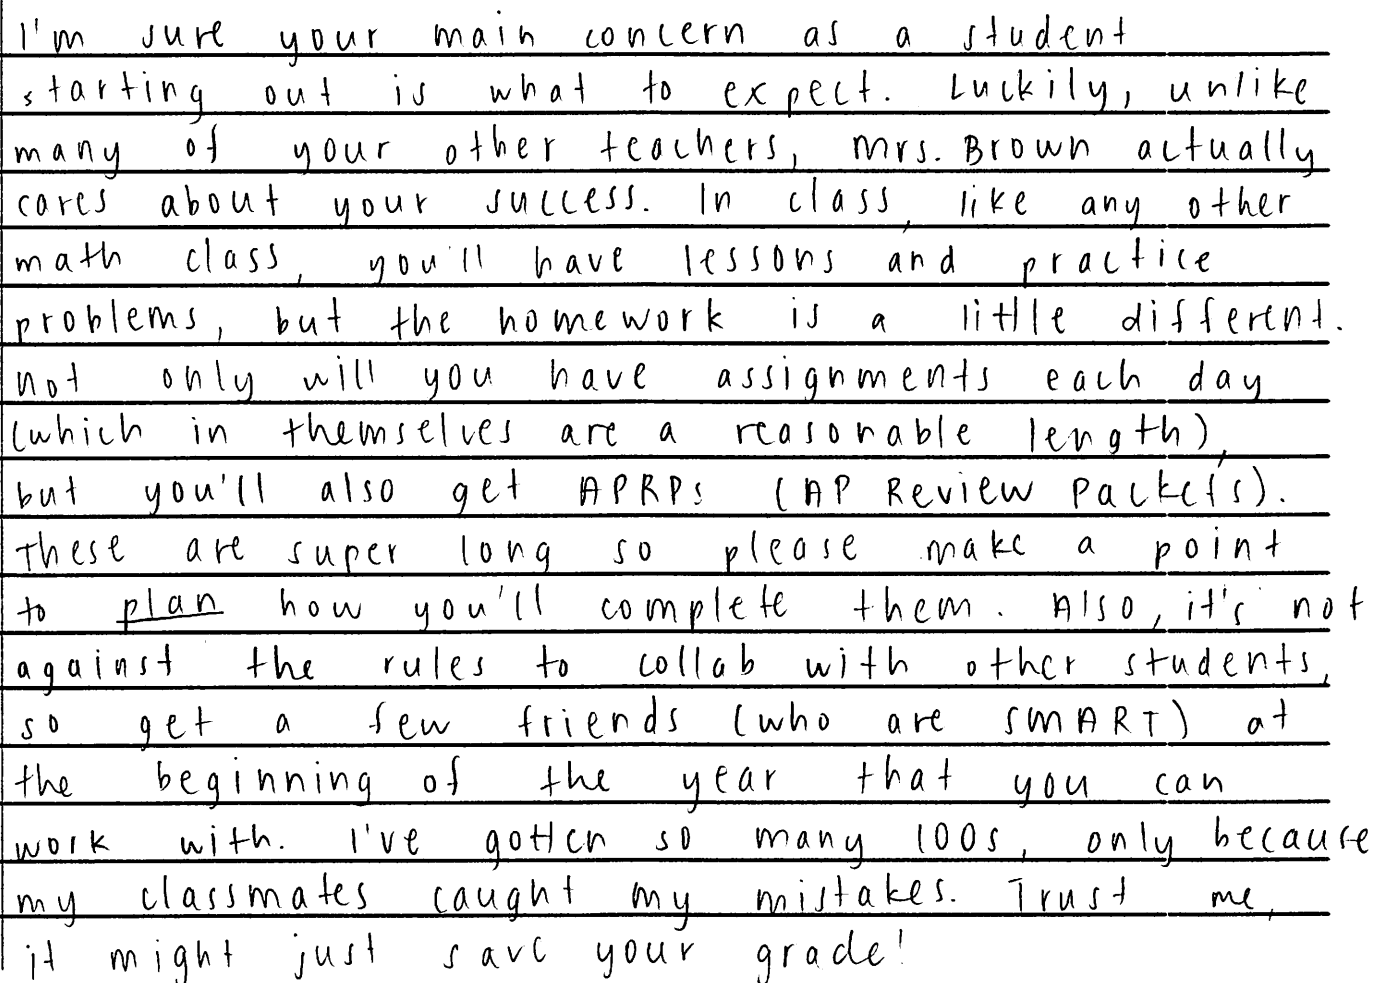 I'm sure your main concern as a student
starting out is what to expect. Luckily, unlike
many of your other teachers, Mrs. Brown actually
cares about your success. In class, like any other
math class, you'll have lessons and practice
problems, but the homework is a little different.
not only will you have assignments each day
(which in themselves are a reasonable length),
but you'll also get APRPs (AP Review Packets).
These are super long so please make a point
to plan how you'll complete them. Also, it's not
against the rules to collab with other students,
so get a few friends (who are SMART) at
the beginning of the year that you can
work with. I've gotten so many 100s, only because
my classmates caught my mistakes. Trust me,
it might just save your grade!